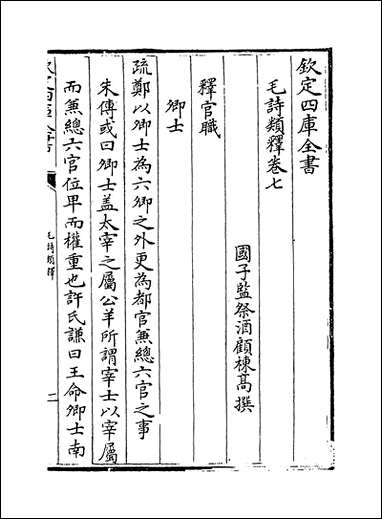 欽定四庫全書
毛詩類釋卷七
國子監祭酒顧棟高撰
釋官職
卿士
疏鄭以卿士為六卿之外更為都官兼總六官之事
朱傳或曰卿士蓋太宰之屬公羊所謂宰士以宰屬
而兼總六官位卑而權重也許氏謙曰王命卿士南
毛詩類釋